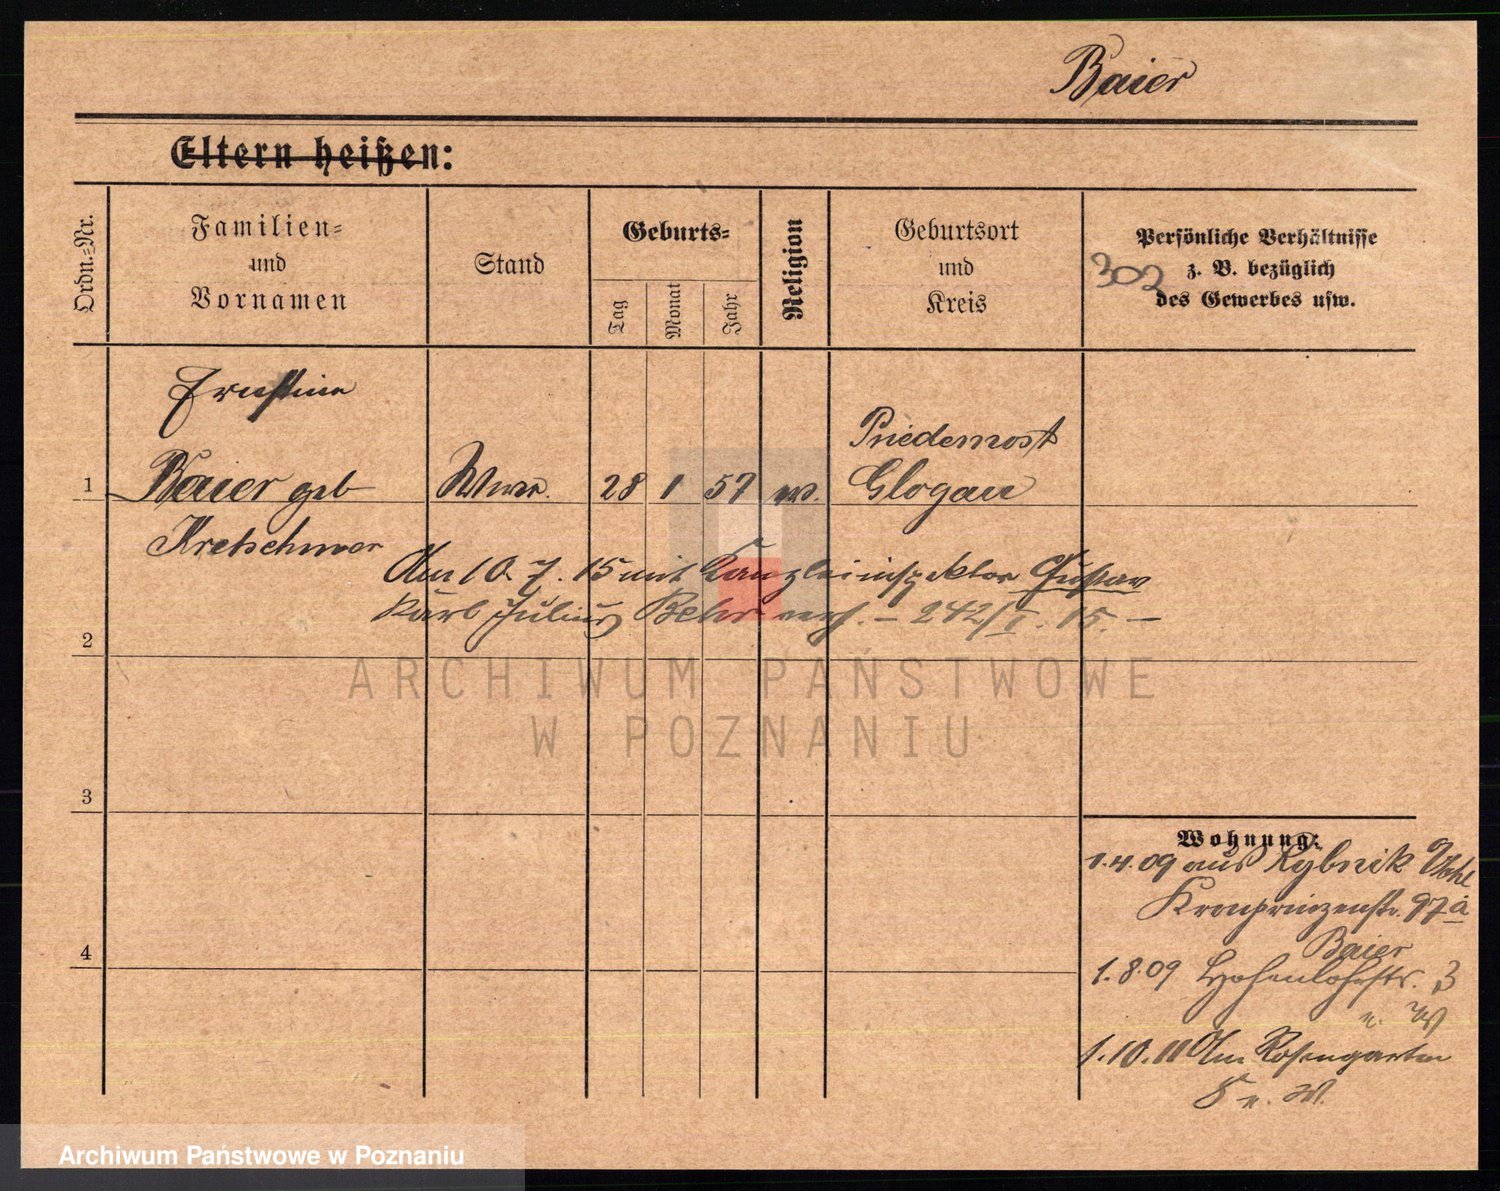 Baier
Eltern heißen:
Ordn.-Nr.
Familien-
und
Vornamen
Stand
Geburts-
Tag
Monat
Jahr
Religion
Geburtsort
und
Kreis
Persönliche Verhältnisse
z. B. bezüglich
des Gewerbes usw.
302
Ernstine
1 Baier geb Wwe. 28 1 57
Kretschmer
Priedemost
Glogau
Am 10. 7. 15 mit Kanzleiinspektor Gustav
Karl Julius Behr verh. — 242/I. 15. —
2
3
4
Wohnung:
1.4.09 aus Rybnik
Kronprinzenstr. 97a
Baier
1.8.09 Hohenlohestr. 3
u. W
1.10.11 Am Rosengarten
5 u. W.
ARCHIWUM PAŃSTWOWE
W POZNANIU
Archiwum Państwowe w Poznaniu